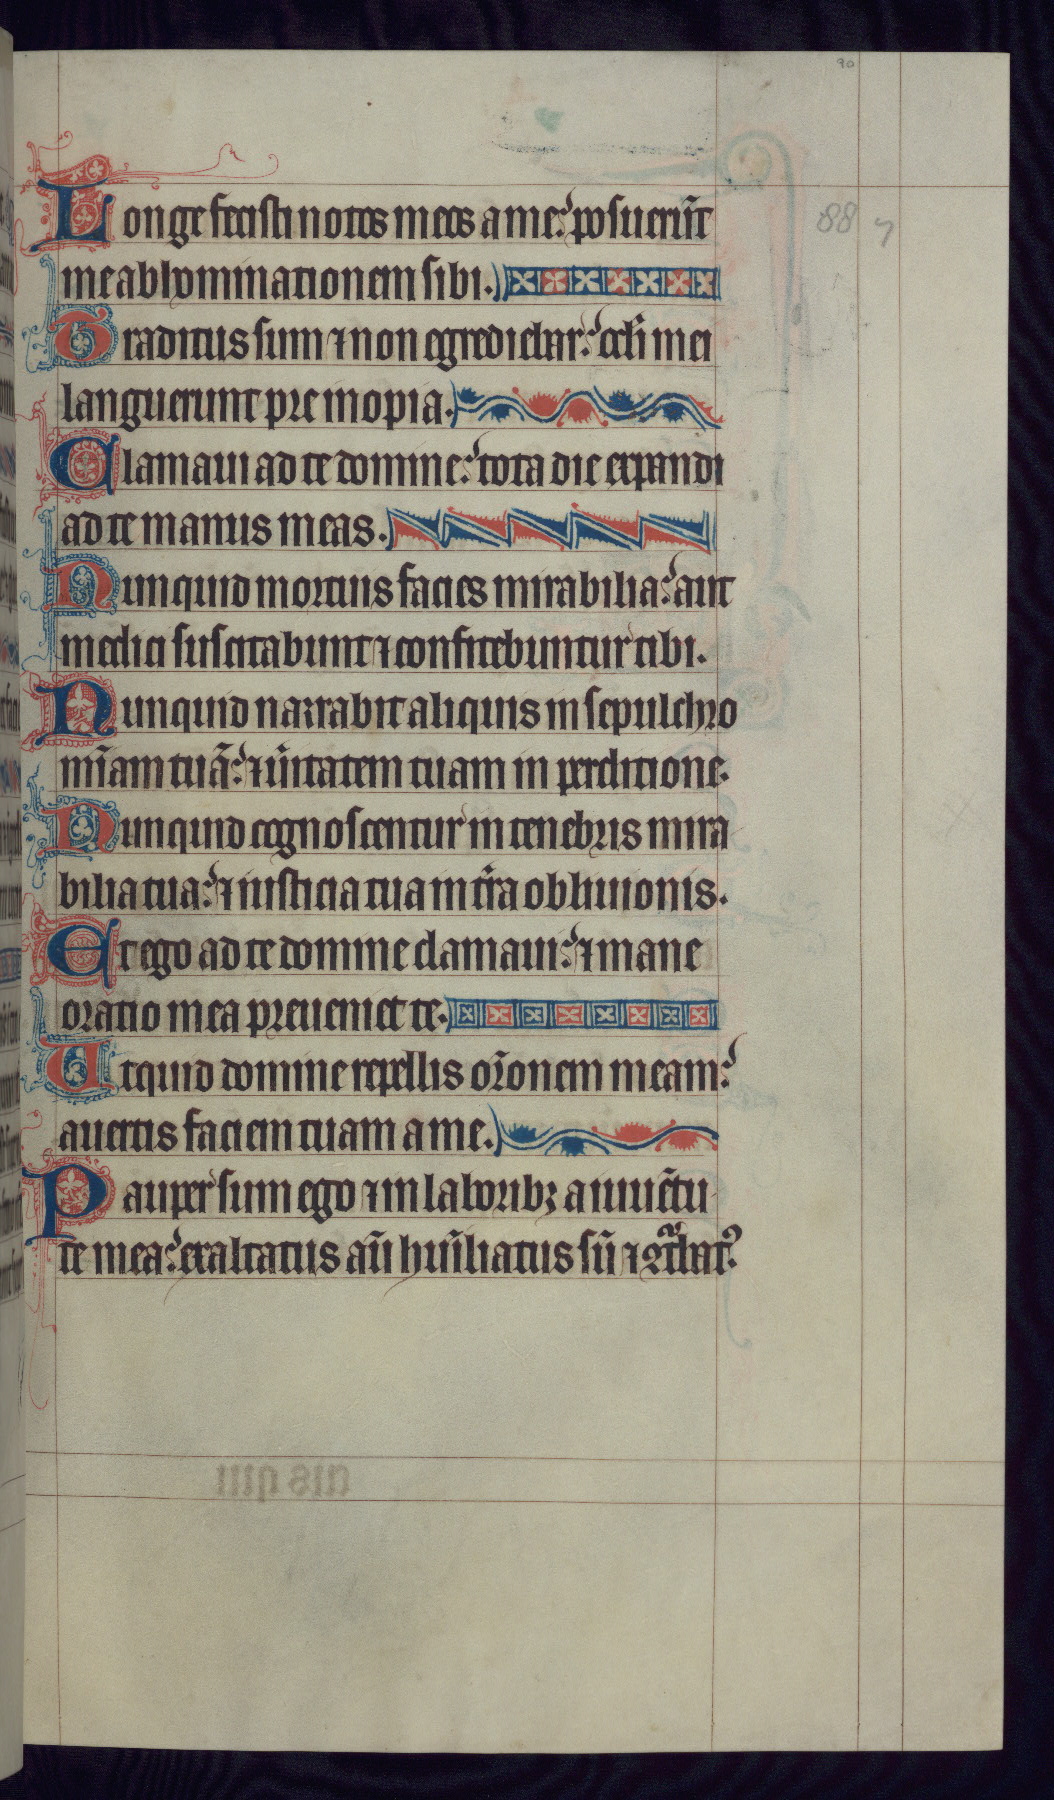 90
88 7
Longe fecisti notos meos a me: posuerūt
me abhominationem sibi.
Traditus sum ⁊ non egrediebar: ocl̄i mei
languerunt pre inopia.
Clamaui ad te domine: tota die expandi
ad te manus meas.
Nunquid mortuis facies mirabilia: aut
medici suscitabunt ⁊ confitebuntur tibi.
Nunquid narrabit aliquis in sepulchro
mīam tuā: ⁊ ūitatem tuam in perditione.
Nunquid cognoscentur in tenebris mira
bilia tua: ⁊ iusticia tua in tr̄a obliuionis.
Et ego ad te domine clamaui: ⁊ mane
oratio mea preueniet te.
Ut quid domine repellis or̄onem meam:
auertis faciem tuam a me.
Pauper sum ego ⁊ in laboribꝫ a iuuētu
te mea: exaltatus aū humiliatus sū ⁊ ꝯt̄bat᷒